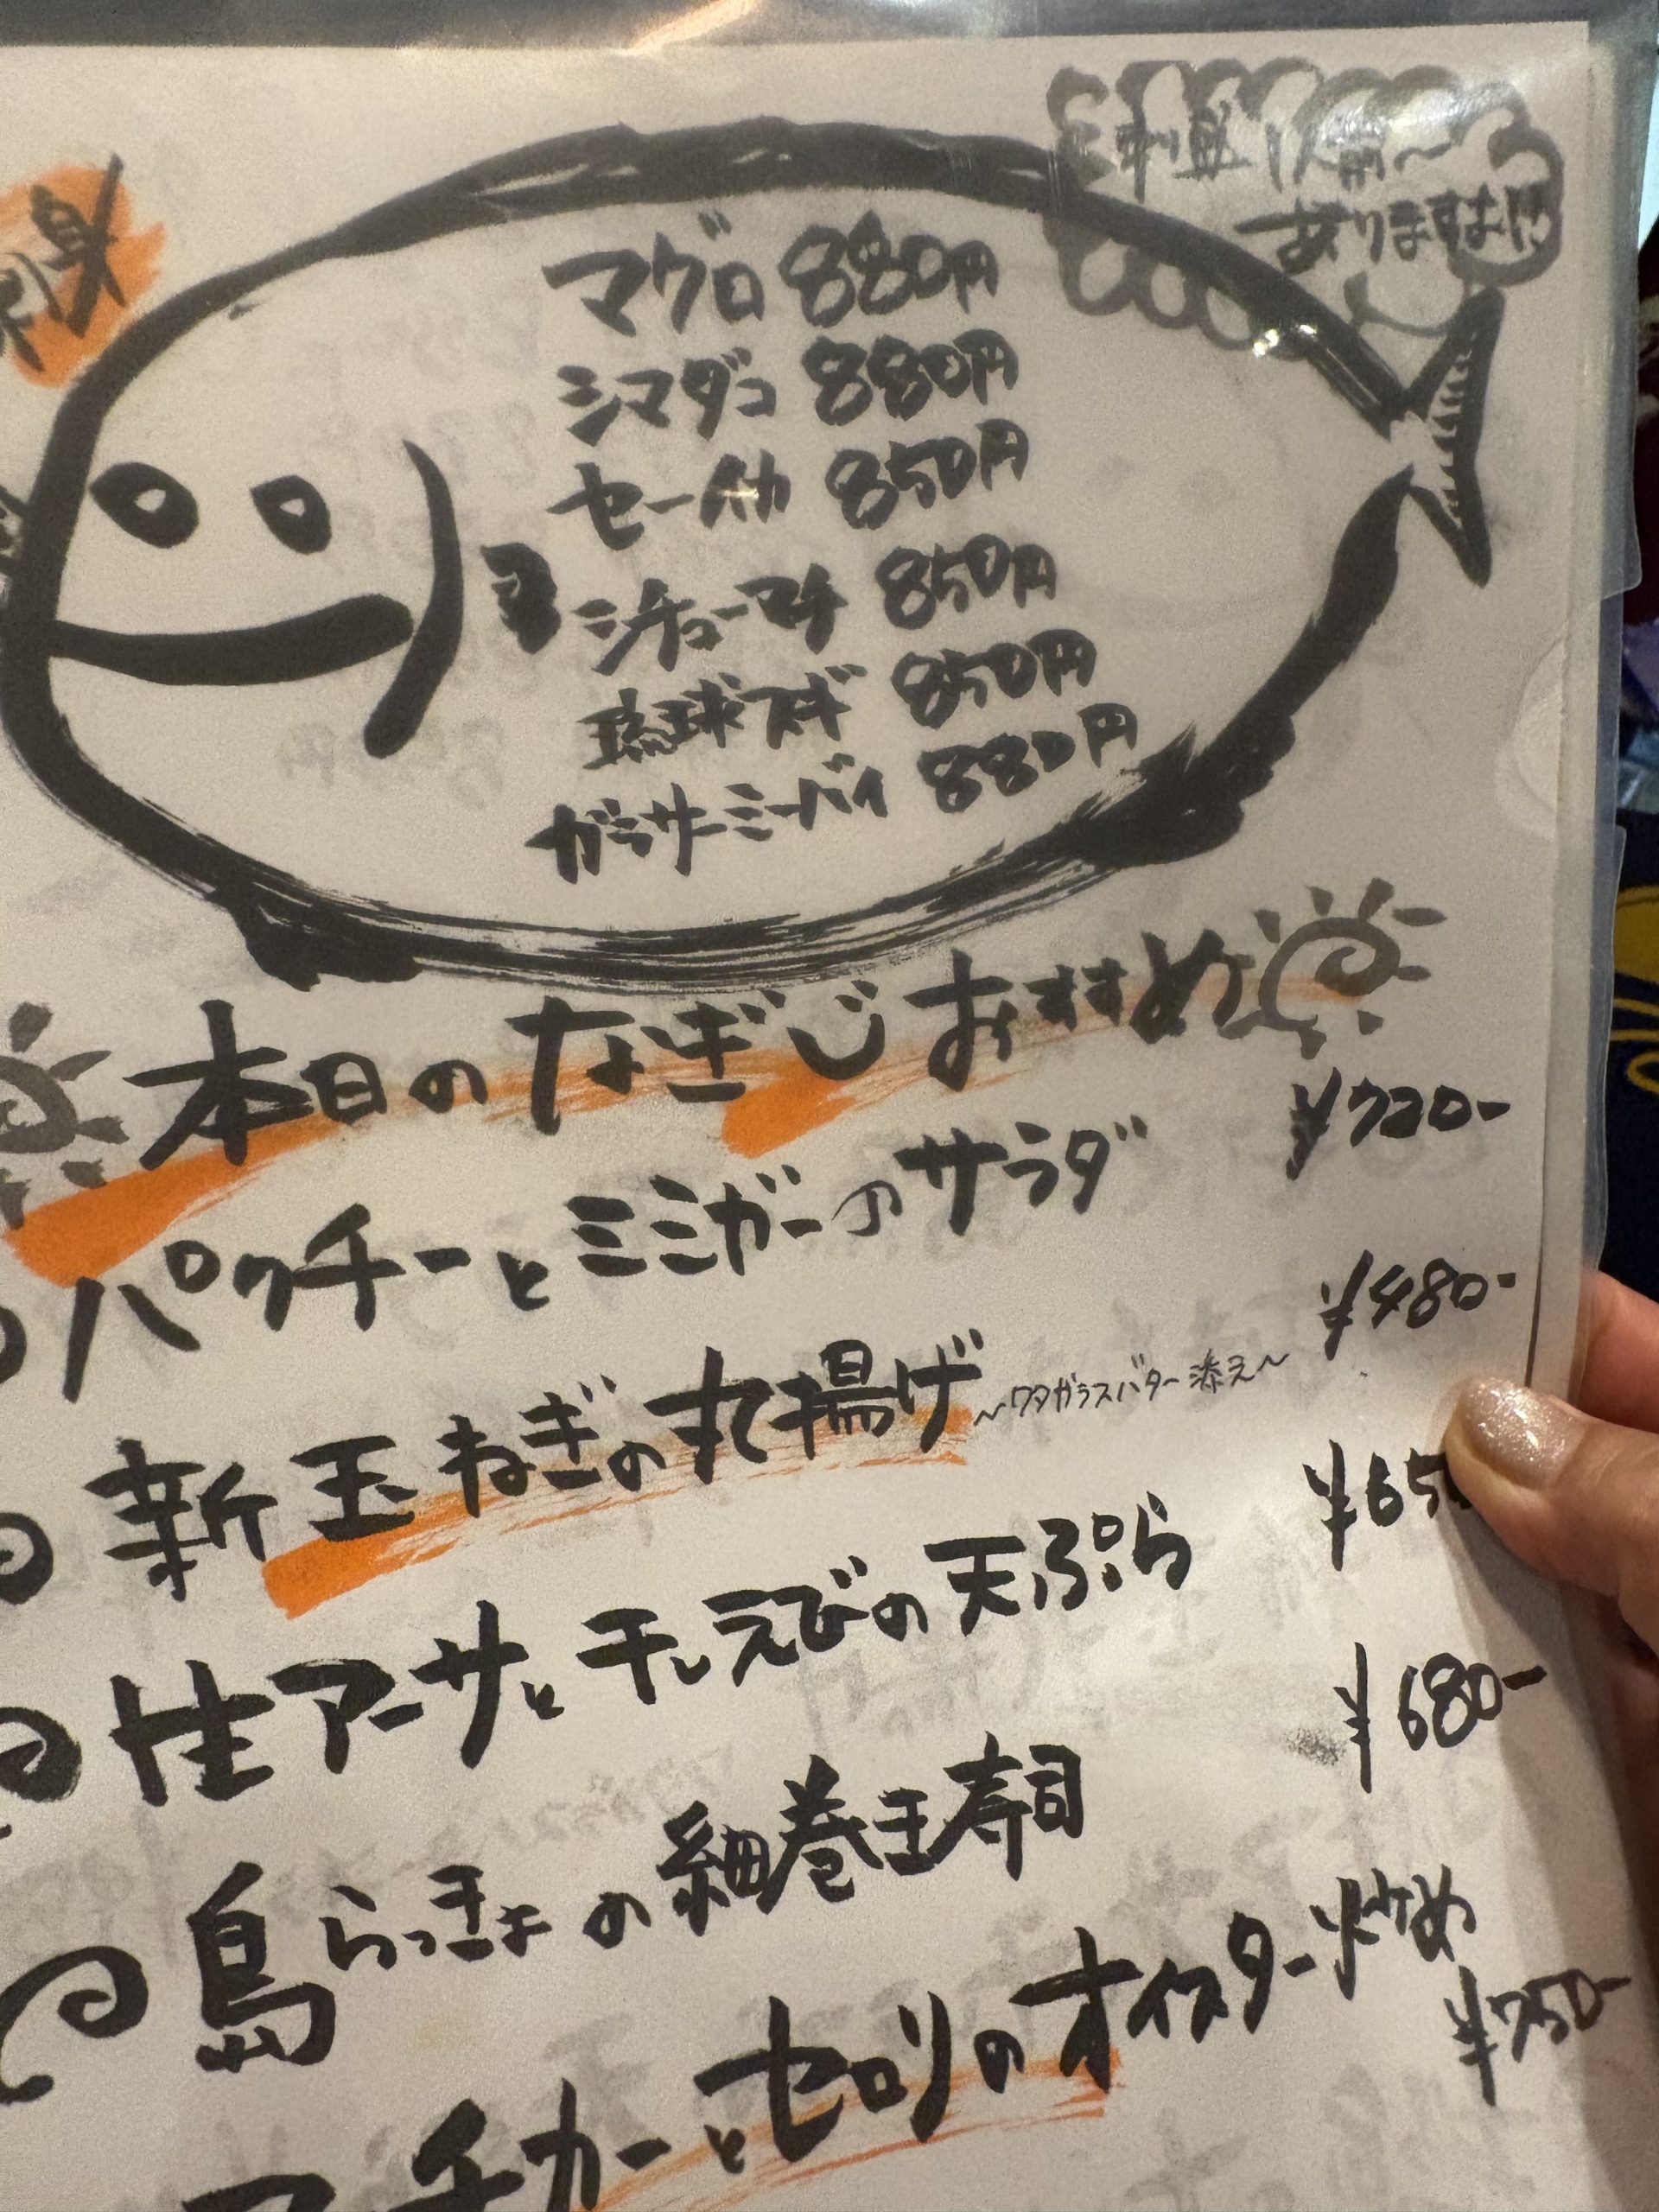 刺身
刺盛1人前〜
ありますよ!!
マグロ 880円
シマダコ 880円
セーイカ 850円
シチューマチ 850円
琉球スギ 850円
ガラサーミーバイ 880円
本日のなぎじおすすめ
パクチーとミミガーのサラダ ¥720-
新玉ねぎの丸揚げ 〜ワタガラスバター添え〜 ¥480-
生アーサと干しえびの天ぷら ¥65
島らっきょの細巻き寿司 ¥680-
チカーとセロリのオイスター炒め ¥750-